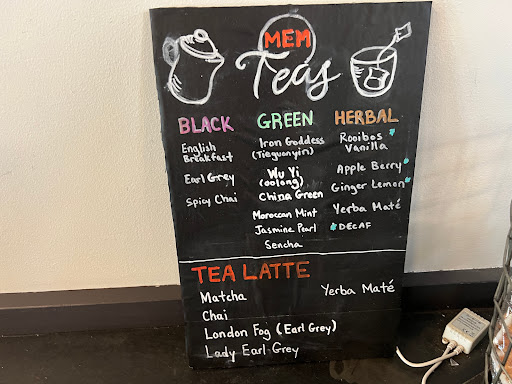 MEM
Teas
BLACK
English
Breakfast
Earl Grey
Spicy Chai
GREEN
Iron Goddess
(Tieguanyin)
Wu Yi
(oolong)
China Green
Moroccan Mint
Jasmine Pearl
Sencha
HERBAL
Rooibos
Vanilla
Apple Berry
Ginger Lemon
Yerba Maté
DECAF
TEA LATTE
Matcha
Chai
London Fog (Earl Grey)
Lady Earl Grey
Yerba Maté